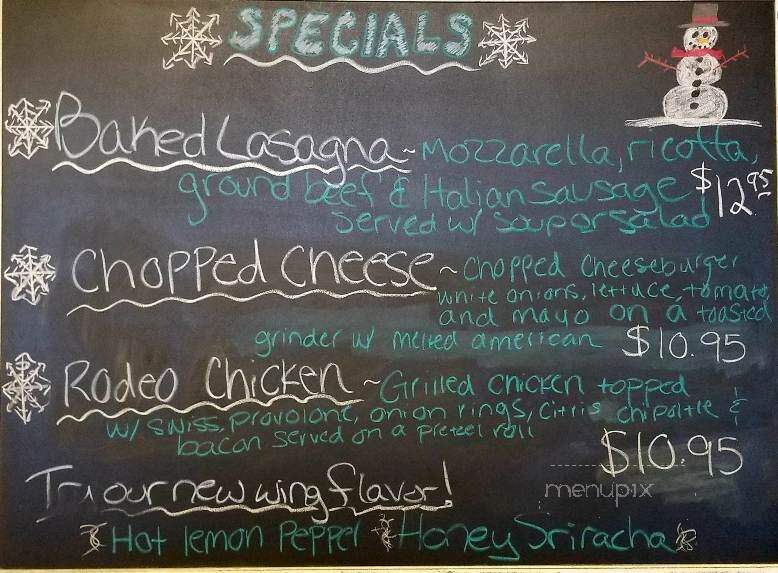 SPECIALS
Baked Lasagna ~ Mozzarella, ricotta,
ground beef & Italian Sausage $12.95
Served w/ soup or salad
Chopped Cheese ~ Chopped Cheeseburger
white onions, lettuce, tomato,
and mayo on a toasted
grinder w/ melted american $10.95
Rodeo Chicken ~ Grilled chicken topped
w/ Swiss, provolone, onion rings, Citris chipoltle &
bacon Served on a pretzel roll
$10.95
Try our new wing flavor!
menupix
Hot lemon Pepper Honey Sriracha